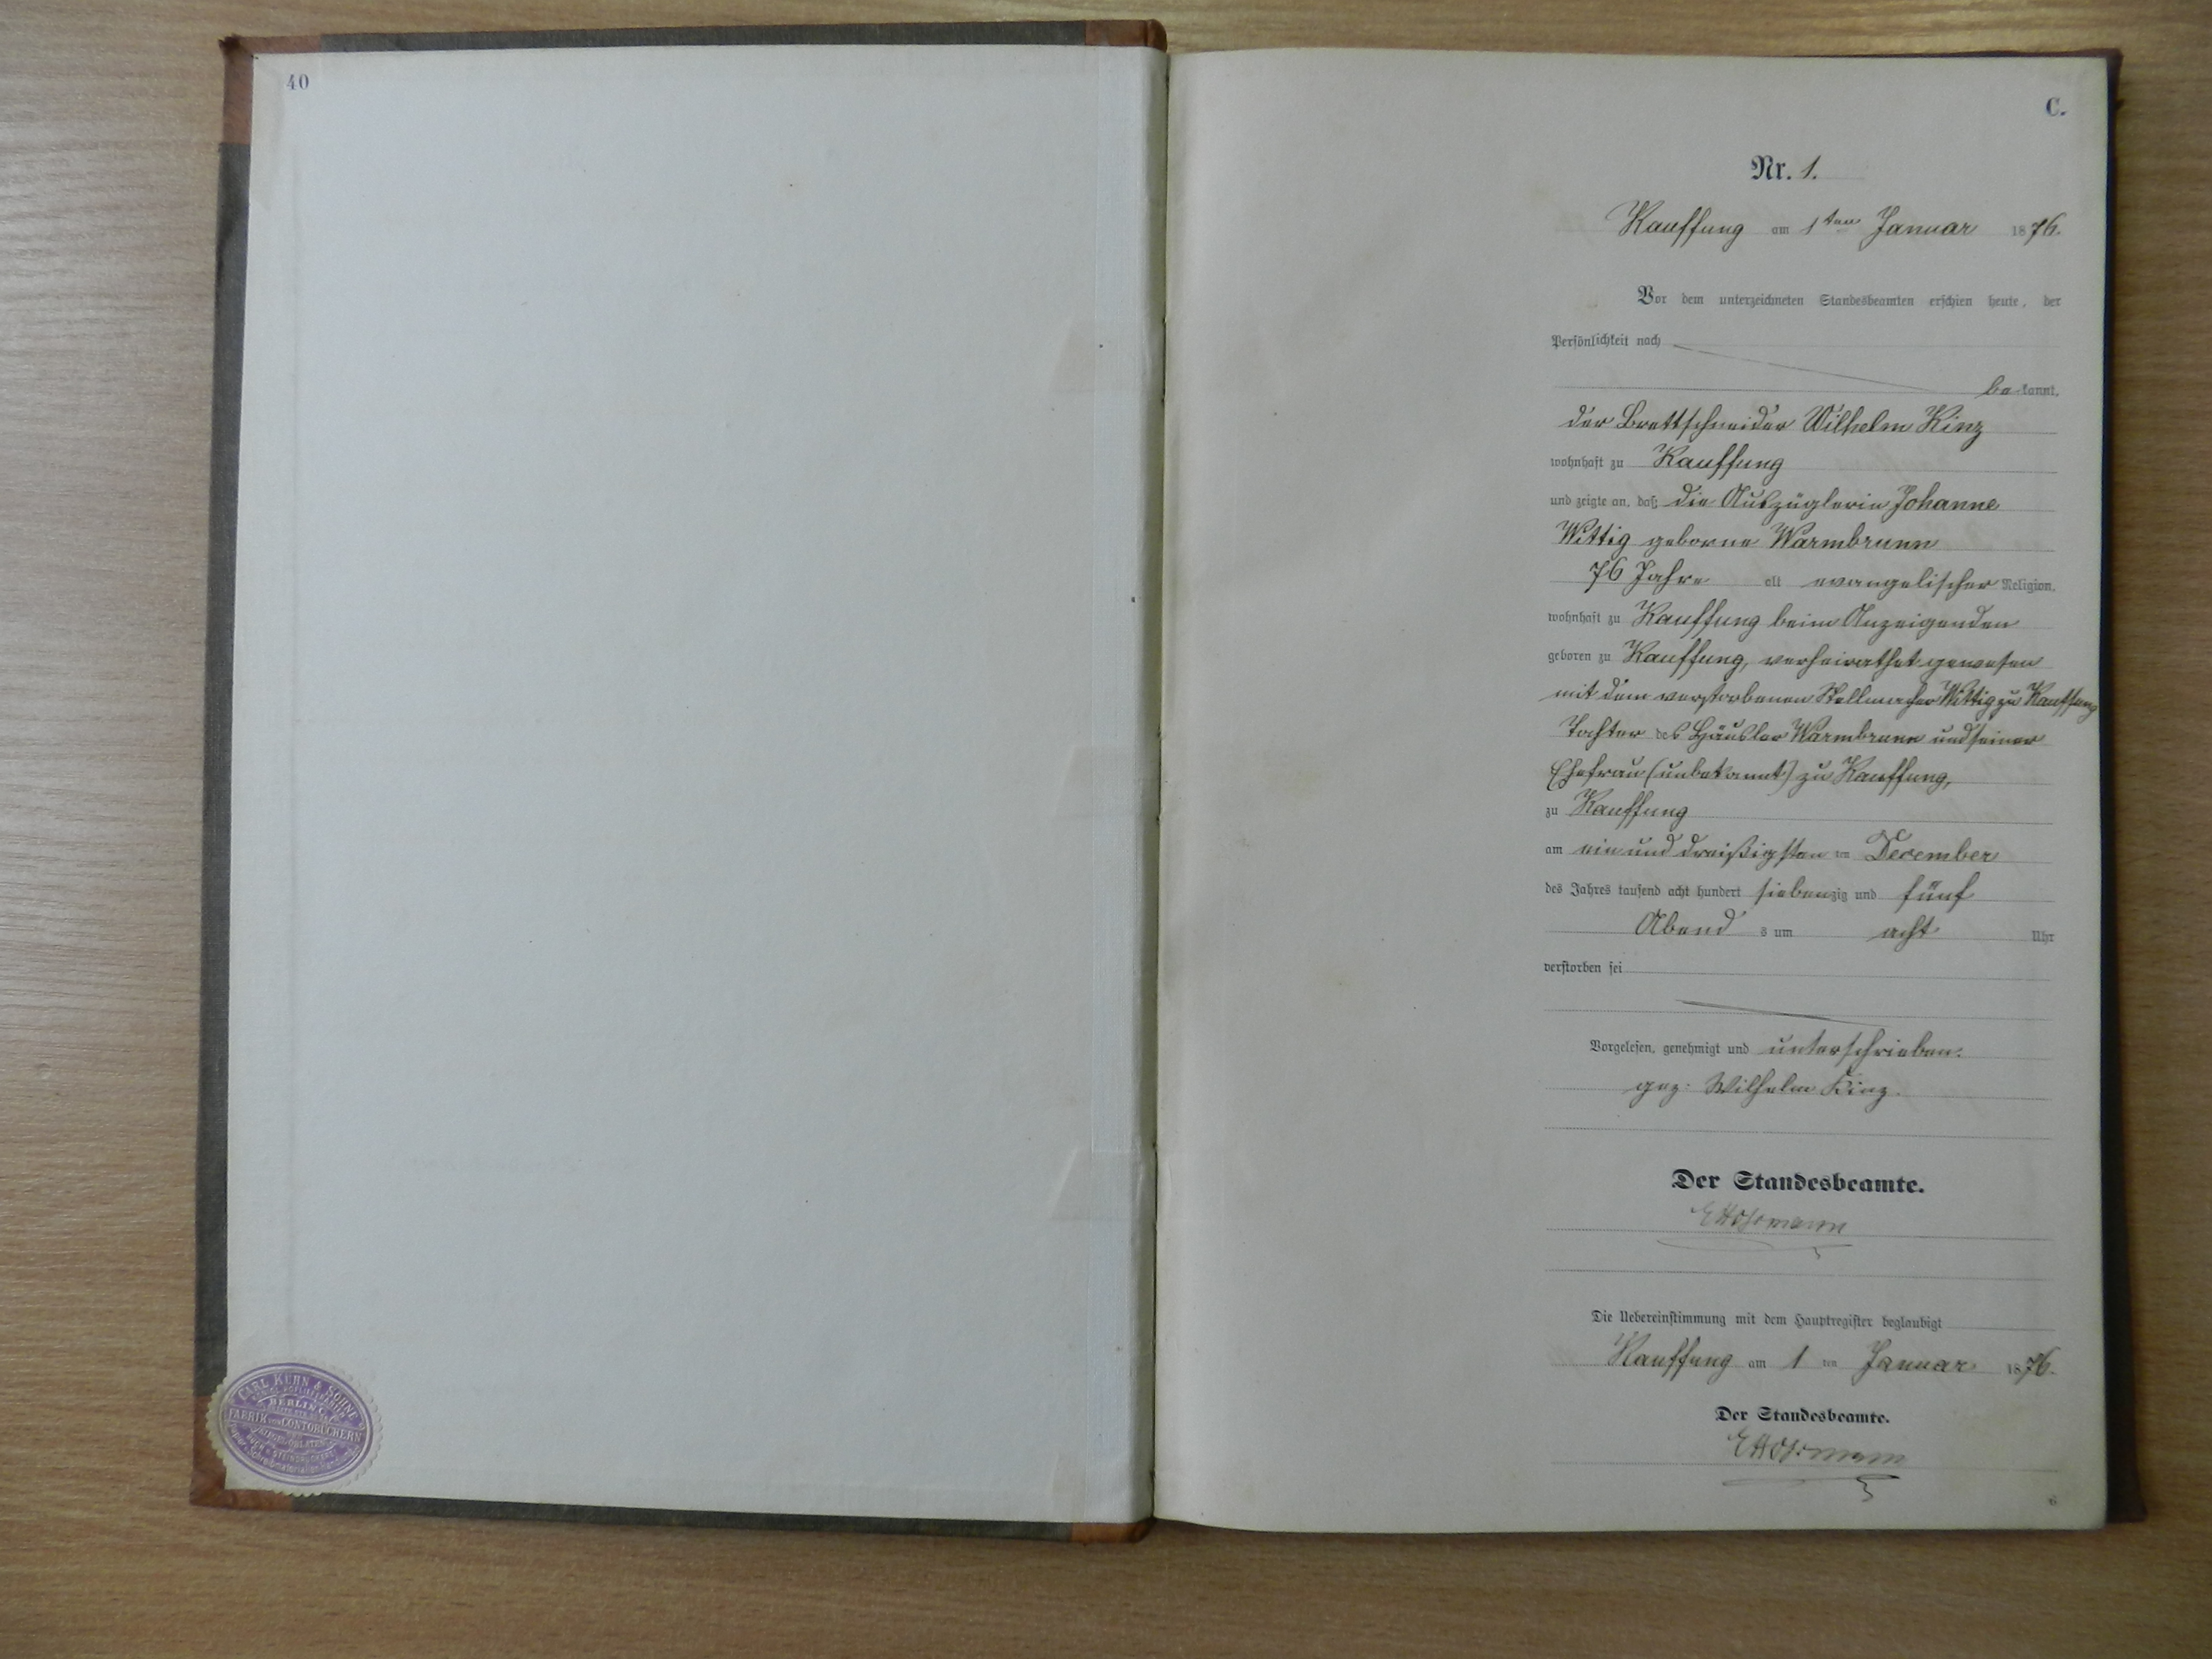 40
CARL KÜHN & SÖHNE
BERLIN C.
FABRIK VON CONTOBÜCHERN
C.
Nr. 1.
Kauffung am 1ten Januar 1876.
Vor dem unterzeichneten Standesbeamten erschien heute, der
Persönlichkeit nach
bekannt,
der Brettschneider Wilhelm Kinz
wohnhaft zu Kauffung
und zeigte an, daß die Auszüglerin Johanne
Wittig geborne Warmbrunn
76 Jahre alt evangelischer Religion,
wohnhaft zu Kauffung beim Anzeigenden
geboren zu Kauffung, verheirathet gewesen
mit dem verstorbenen Stellmacher Wittig zu Kauffung
Tochter des Häusler Warmbrunn und seiner
Ehefrau (unbekannt) zu Kauffung,
zu Kauffung
am ein und dreißigsten ten December
des Jahres tausend acht hundert siebenzig und fünf
Abend s um acht Uhr
verstorben sei
Vorgelesen, genehmigt und unterschrieben.
gez. Wilhelm Kinz.
Der Standesbeamte.
Die Uebereinstimmung mit dem Hauptregister beglaubigt
Kauffung am 1 ten Januar 1876.
Der Standesbeamte.
6